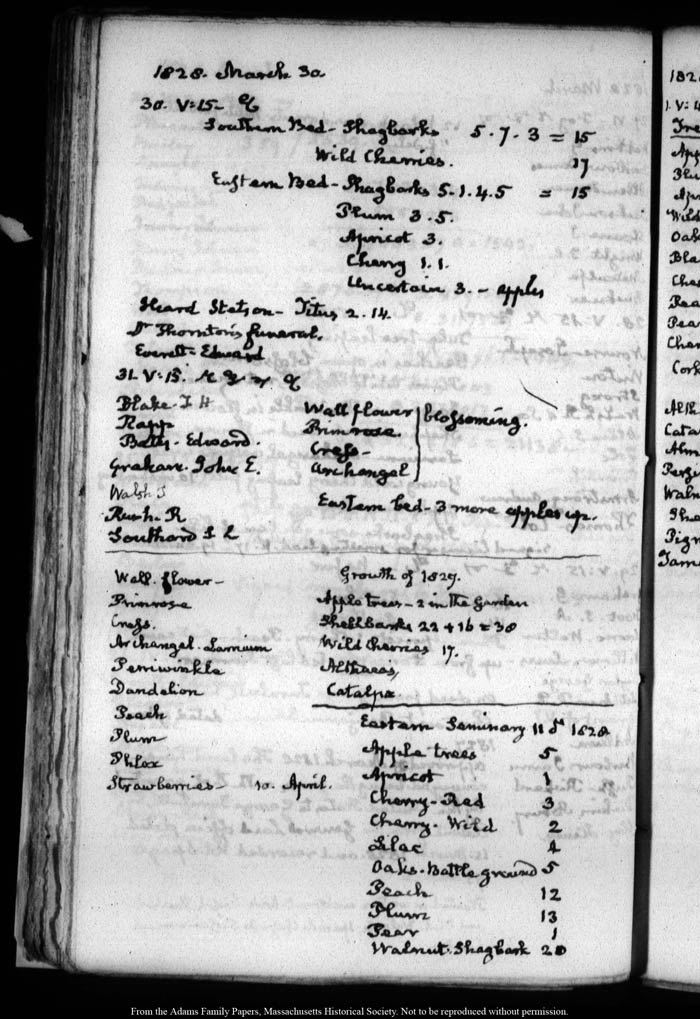 1828. March 30.
30. V:15-
Southern Bed- Shagbarks 5. 7. 3 = 15
Wild Cherries. 17
Eastern Bed- Shagbarks 5. 1. 4. 5 = 15
Plum 3. 5.
Apricot 3.
Cherry 1. 1.
Uncertain 3. - apples
Heard Stetson- Titus 2. 14.
Dr Thornton's funeral.
Everett- Edward
31. V:15.
Blake. J H
Rapp
Betty- Edward.
Graham. John E.
Walsh J
Rush. R
Southard S L
Wall flower
Primrose.
Cress-
Archangel
blossoming.
Eastern bed- 3 more apples up.
Wall. flower-
Primrose
Cress.
Archangel. Lamium
Periwinkle
Dandelion
Peach
Plum
Phlox
Strawberries- 10. April.
Growth of 1827.
Apple trees- 2 in the Garden
Shellbarks 22 + 16 = 38
Wild Cherries 17.
Altheas,
Catalpa
Eastern Seminary 1828
Apple trees 5
Apricot 1
Cherry- Red 3
Cherry. Wild 2
Lilac 4
Oaks. Battle ground 5
Peach 12
Plum 13
Pear 1
Walnut. Shagbark 20
From the Adams Family Papers, Massachusetts Historical Society. Not to be reproduced without permission.